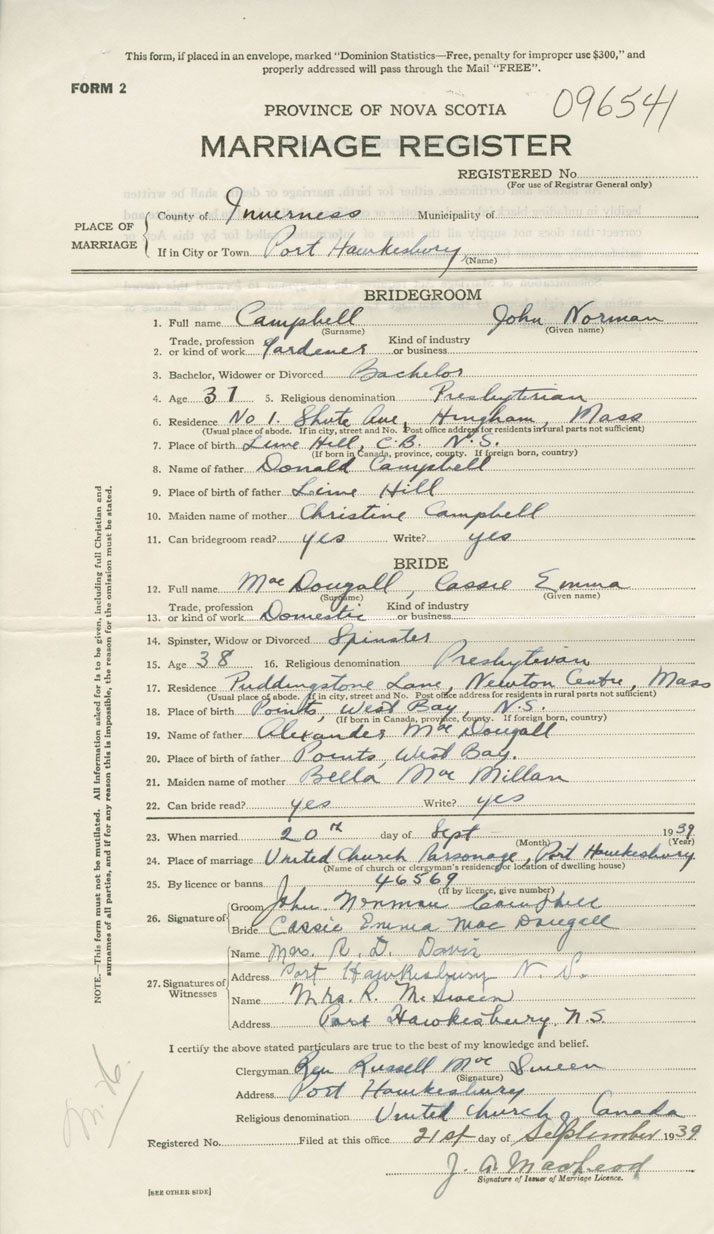 This form, if placed in an envelope, marked "Dominion Statistics—Free, penalty for improper use $300," and
properly addressed will pass through the Mail "FREE".
FORM 2
PROVINCE OF NOVA SCOTIA
096541
MARRIAGE REGISTER
REGISTERED No.
(For use of Registrar General only)
PLACE OF MARRIAGE
County of Inverness Municipality of
If in City or Town Port Hawkesbury
(Name)
BRIDEGROOM
1. Full name Campbell John Norman
(Surname) (Given name)
2. Trade, profession or kind of work Gardener Kind of industry or business
3. Bachelor, Widower or Divorced Bachelor
4. Age 37 5. Religious denomination Presbyterian
6. Residence No 1. Shute Ave, Hingham, Mass
(Usual place of abode. If in city, street and No. Post office address for residents in rural parts not sufficient)
7. Place of birth Lime Hill, C.B. N.S.
(If born in Canada, province, county. If foreign born, country)
8. Name of father Donald Campbell
9. Place of birth of father Lime Hill
10. Maiden name of mother Christine Campbell
11. Can bridegroom read? yes Write? yes
BRIDE
12. Full name MacDougall, Cassie Emma
(Surname) (Given name)
13. Trade, profession or kind of work Domestic Kind of industry or business
14. Spinster, Widow or Divorced Spinster
15. Age 38 16. Religious denomination Presbyterian
17. Residence Puddingstone Lane, Newton Centre, Mass
(Usual place of abode. If in city, street and No. Post office address for residents in rural parts not sufficient)
18. Place of birth Points, West Bay, N.S.
(If born in Canada, province, county. If foreign born, country)
19. Name of father Alexander MacDougall
20. Place of birth of father Points, West Bay.
21. Maiden name of mother Bella MacMillan
22. Can bride read? yes Write? yes
23. When married 20th day of Sept 1939
(Month) (Year)
24. Place of marriage United Church Parsonage, Port Hawkesbury
(Name of church or clergyman's residence or location of dwelling house)
25. By licence or banns 46569
(If by licence, give number)
26. Signature of
Groom John Norman Campbell
Bride Cassie Emma MacDougall
27. Signatures of Witnesses
Name Mrs. R. D. Davis
Address Port Hawkesbury N. S.
Name Mrs. R. McSween
Address Port Hawkesbury, N.S.
I certify the above stated particulars are true to the best of my knowledge and belief.
Clergyman Rev Russell MacSween
(Signature)
Address Port Hawkesbury
Religious denomination United Church of Canada
Registered No. Filed at this office 21st day of September 1939
J. A.
Signature of Issuer of Marriage Licence.
[SEE OTHER SIDE]
NOTE.—This form must not be mutilated. All information asked for is to be given, including full Christian and
surnames of all parties, and if for any reason this is impossible, the reason for the omission must be stated.